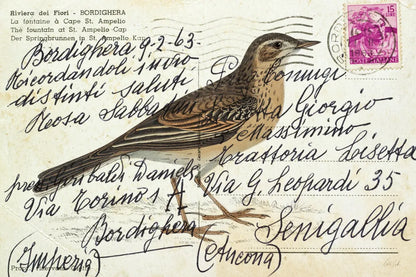 Riviera dei Fiori - BORDIGHERA
La fontaine à Cape St. Ampelio
The fountain at St. Ampelio Cap
Der Springbrunnen in St. Ampelio Kap
Bordighera 9-2-63
Ricordandoli invio
distinti saluti
Rosa Sabbatin
pres Garibaldi Daniele
Via Torino 17
Bordighera
(Imperia)
15
POSTE ITALIANE
Coniugi
Giorgio
e Massimino
Trattoria Loisetta
Via G. Leopardi 35
Senigallia
(Ancona)